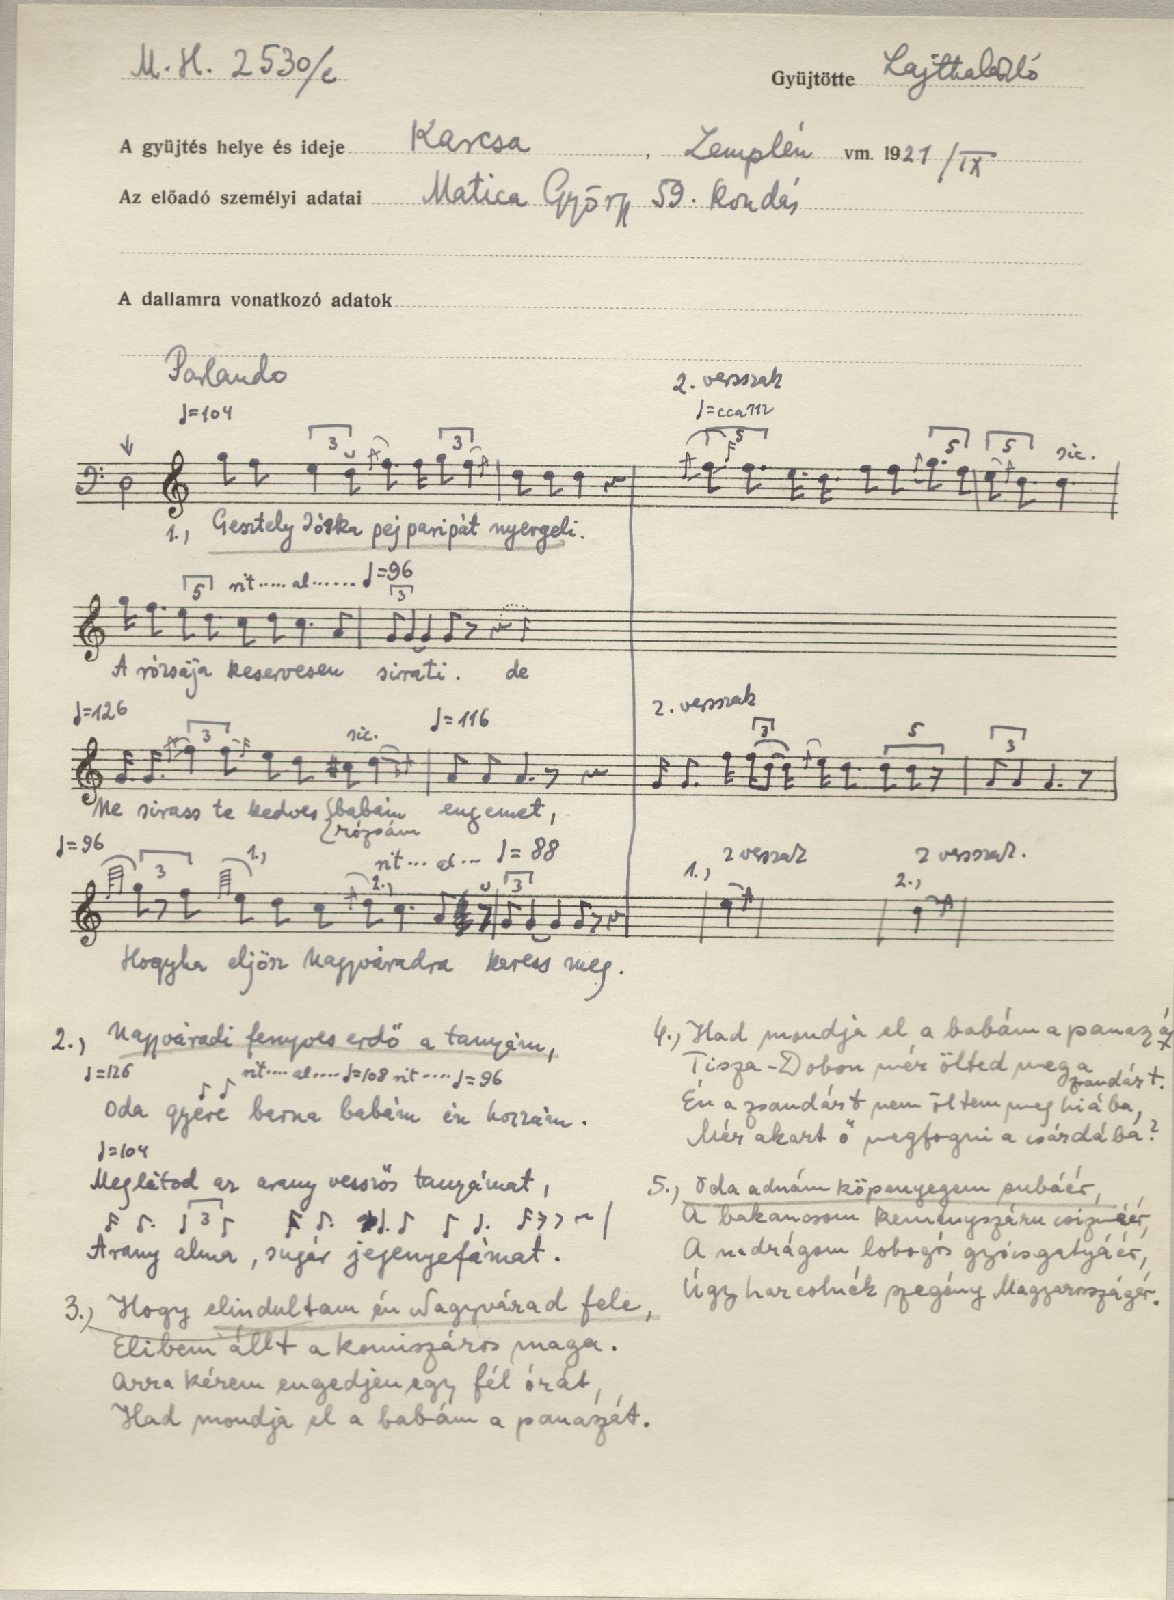 M. H. 2530/c
Gyüjtötte Lajtha László
A gyüjtés helye és ideje Karcsa, Zemplén vm. 1921/IX
Az előadó személyi adatai Matica György 59. kondás
A dallamra vonatkozó adatok
Parlando
♩=104
3 3
2. versszak
♩=cca 112
5 5 5 sic.
1., Gesztely Jóska pej paripát nyergeli.
5 rit..... al...... ♩=96
3
A rózsája keservesen siratí. de
♩=126 3 sic. ♩=116
2. versszak
3 5 3
Ne sirass te kedves babám engemet,
rózsám
♩=96 3 1., 2., rit... al... ♩=88 3
1., 2 verszak 2., 2 verszak.
Hogyha eljösz Nagyváradra keress meg.
2., Nagyváradi fenyves erdő a tanyám,
♩=126 rit.... al.... ♩=108 rit..... ♩=96
Oda gyere barna babám én hozzám.
♩=104
Meglátod az arany vesszős tanyámat,
3
Arany alma, sugár jegenyefámat.
3., Hogy elindultam én Nagyvárad fele,
Elibem állt a komiszáros maga.
Arra kérem engedjen egy fél órát,
Had mondja el a babám a panaszát.
4., Had mondja el a babám a panaszát
Tisza-Dobon mér ölted meg a zsandárt.
Én a zsandárt nem öltem meg hiába,
Mér akart ő megfogni a csárdába?
5., Oda adnám köpenyegem subáér,
A bakancsom keményszáru csizmáér,
A nadrágom lobogós gyócsgatyáér,
Úgy harcolnék szegény Magyarországér.